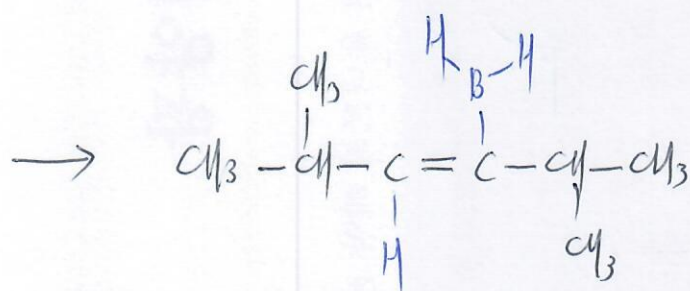 H H
CH3 B
→ CH3 - CH - C = C - CH - CH3
H CH3